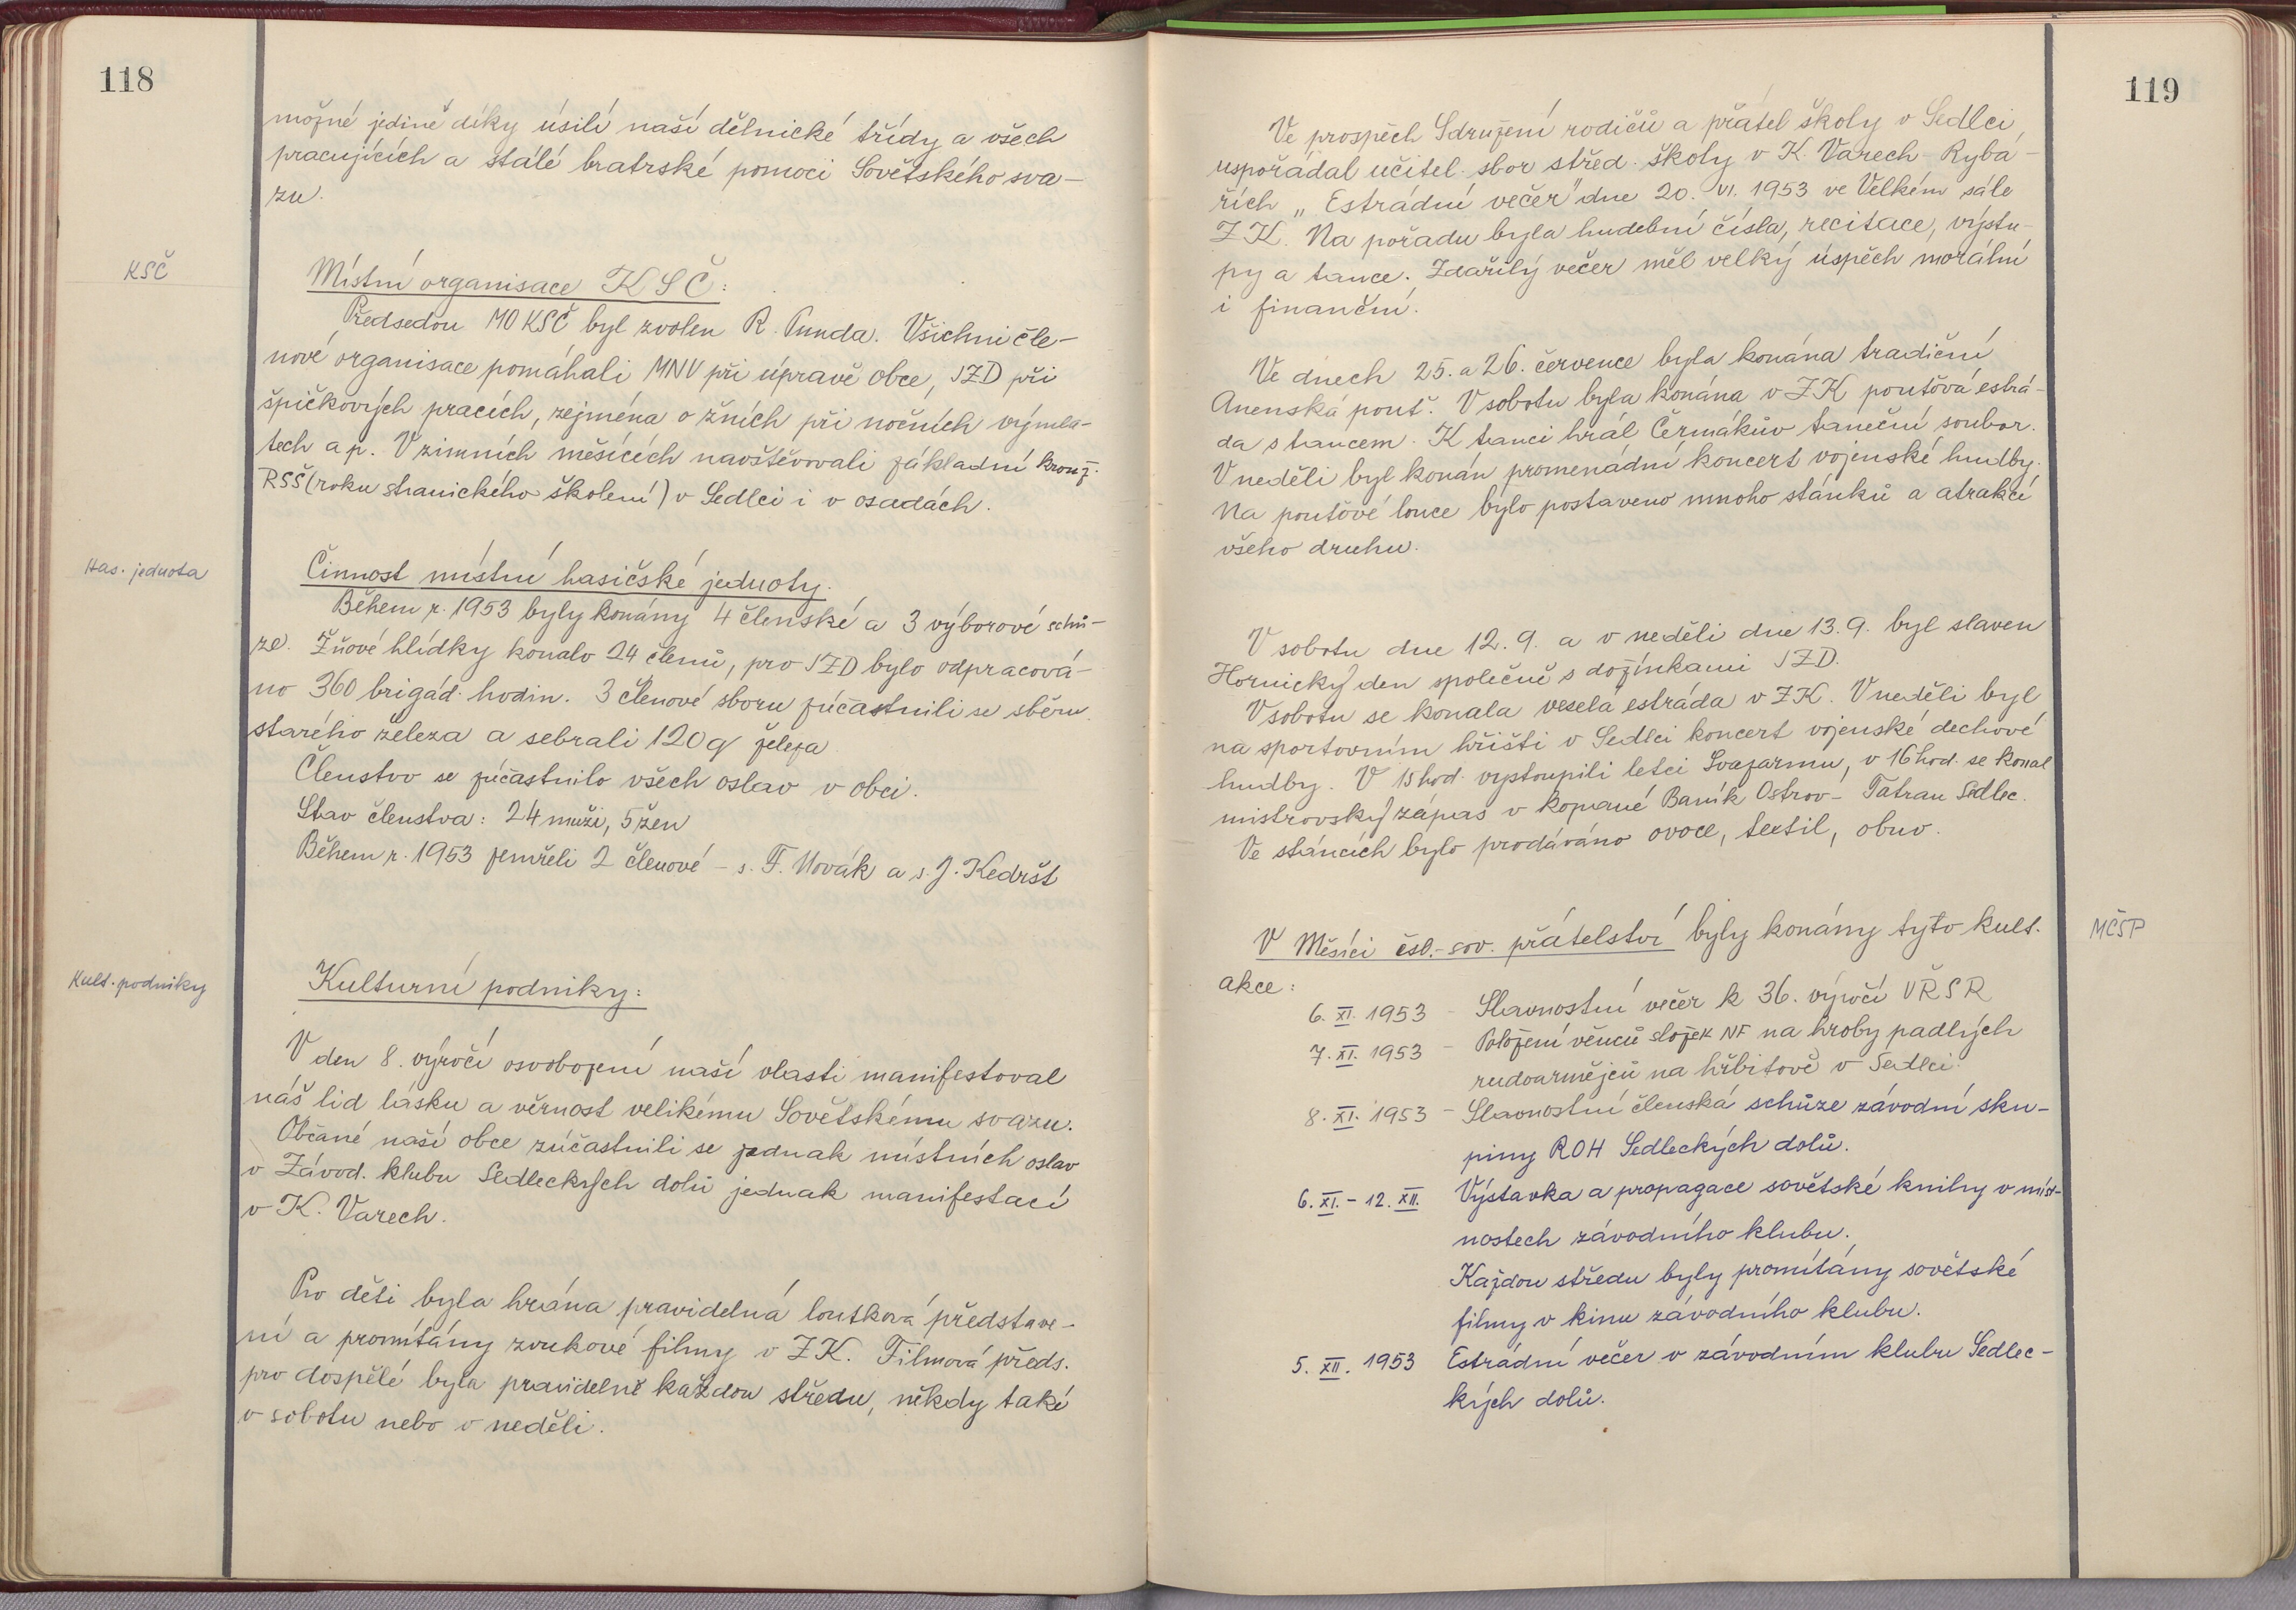 118
možné jedině díky úsilí naší dělnické třídy a všech
pracujících a stálé bratrské pomoci Sovětského sva-
zu.
KSČ
Místní organisace KSČ:
Předsedou MO KSČ byl zvolen R. Punda. Všichni čle-
nové organisace pomáhali MNV při úpravě obce, JZD při
špičkových pracích, zejména o žních při nočních výmla-
tech a p. V zimních měsících navštěvovali základní krouž.
RSŠ (roku stranického školení) v Sedlci i v osadách.
Has. jednota
Činnost místní hasičské jednoty.
Během r. 1953 byly konány 4 členské a 3 výborové schů-
ze. Žňové hlídky konalo 24 členů, pro JZD bylo odpracová-
no 360 brigád. hodin. 3 členové sboru zúčastnili se sběru
starého železa a sebrali 120 q železa
Členstvo se zúčastnilo všech oslav v obci.
Stav členstva: 24 muži, 5 žen
Během r. 1953 zemřeli 2 členové – s. F. Novák a s. J. Kedršt
Kult. podniky
Kulturní podniky:
V den 8. výročí osvobození naší vlasti manifestoval
náš lid lásku a věrnost velikému Sovětskému svazu.
Občané naší obce zúčastnili se jednak místních oslav
v Závod. klubu Sedleckých dolů jednak manifestací
v K. Varech.
Pro děti byla hrána pravidelná loutková představe-
ní a promítány zvukové filmy v ZK. Filmová předs.
pro dospělé byla pravidelně každou středu, někdy také
v sobotu nebo v neděli.
119
Ve prospěch Sdružení rodičů a přátel školy v Sedlci
uspořádal učitel. sbor střed. školy v K. Varech - Rybá-
řích „Estrádní večer" dne 20. VI. 1953 ve Velkém sále
ZK. Na pořadu byla hudební čísla, recitace, výstu-
py a tance. Zdařilý večer měl velký úspěch morální
i finanční.
Ve dnech 25. a 26. července byla konána tradiční
Anenská pouť. V sobotu byla konána v ZK pouťová estrá-
da s tancem. K tanci hrál Čermákův taneční soubor.
V neděli byl konán promenádní koncert vojenské hudby.
Na pouťové louce bylo postaveno mnoho stánků a atrakcí
všeho druhu.
V sobotu dne 12. 9. a v neděli dne 13. 9. byl slaven
Hornický den společně s dožínkami JZD.
V sobotu se konala veselá estráda v ZK. V neděli byl
na sportovním hřišti v Sedlci koncert vojenské dechové
hudby. V 15 hod. vystoupili letci Svazarmu, v 16 hod. se konal
mistrovský zápas v kopané Baník Ostrov – Tatran Sedlec.
Ve stáncích bylo prodáváno ovoce, textil, obuv.
MČSP
V Měsíci čsl.-sov. přátelství byly konány tyto kult.
akce:
6. XI. 1953 – Slavnostní večer k 36. výročí VŘSR
7. XI. 1953 – Položení věnců složek NF na hroby padlých
rudoarmějců na hřbitově v Sedlci.
8. XI. 1953 – Slavnostní členská schůze závodní sku-
piny ROH Sedleckých dolů.
6. XI. – 12. XII. Výstavka a propagace sovětské knihy v míst-
nostech závodního klubu.
Každou středu byly promítány sovětské
filmy v kinu závodního klubu.
5. XII. 1953 Estrádní večer v závodním klubu Sedlec-
kých dolů.